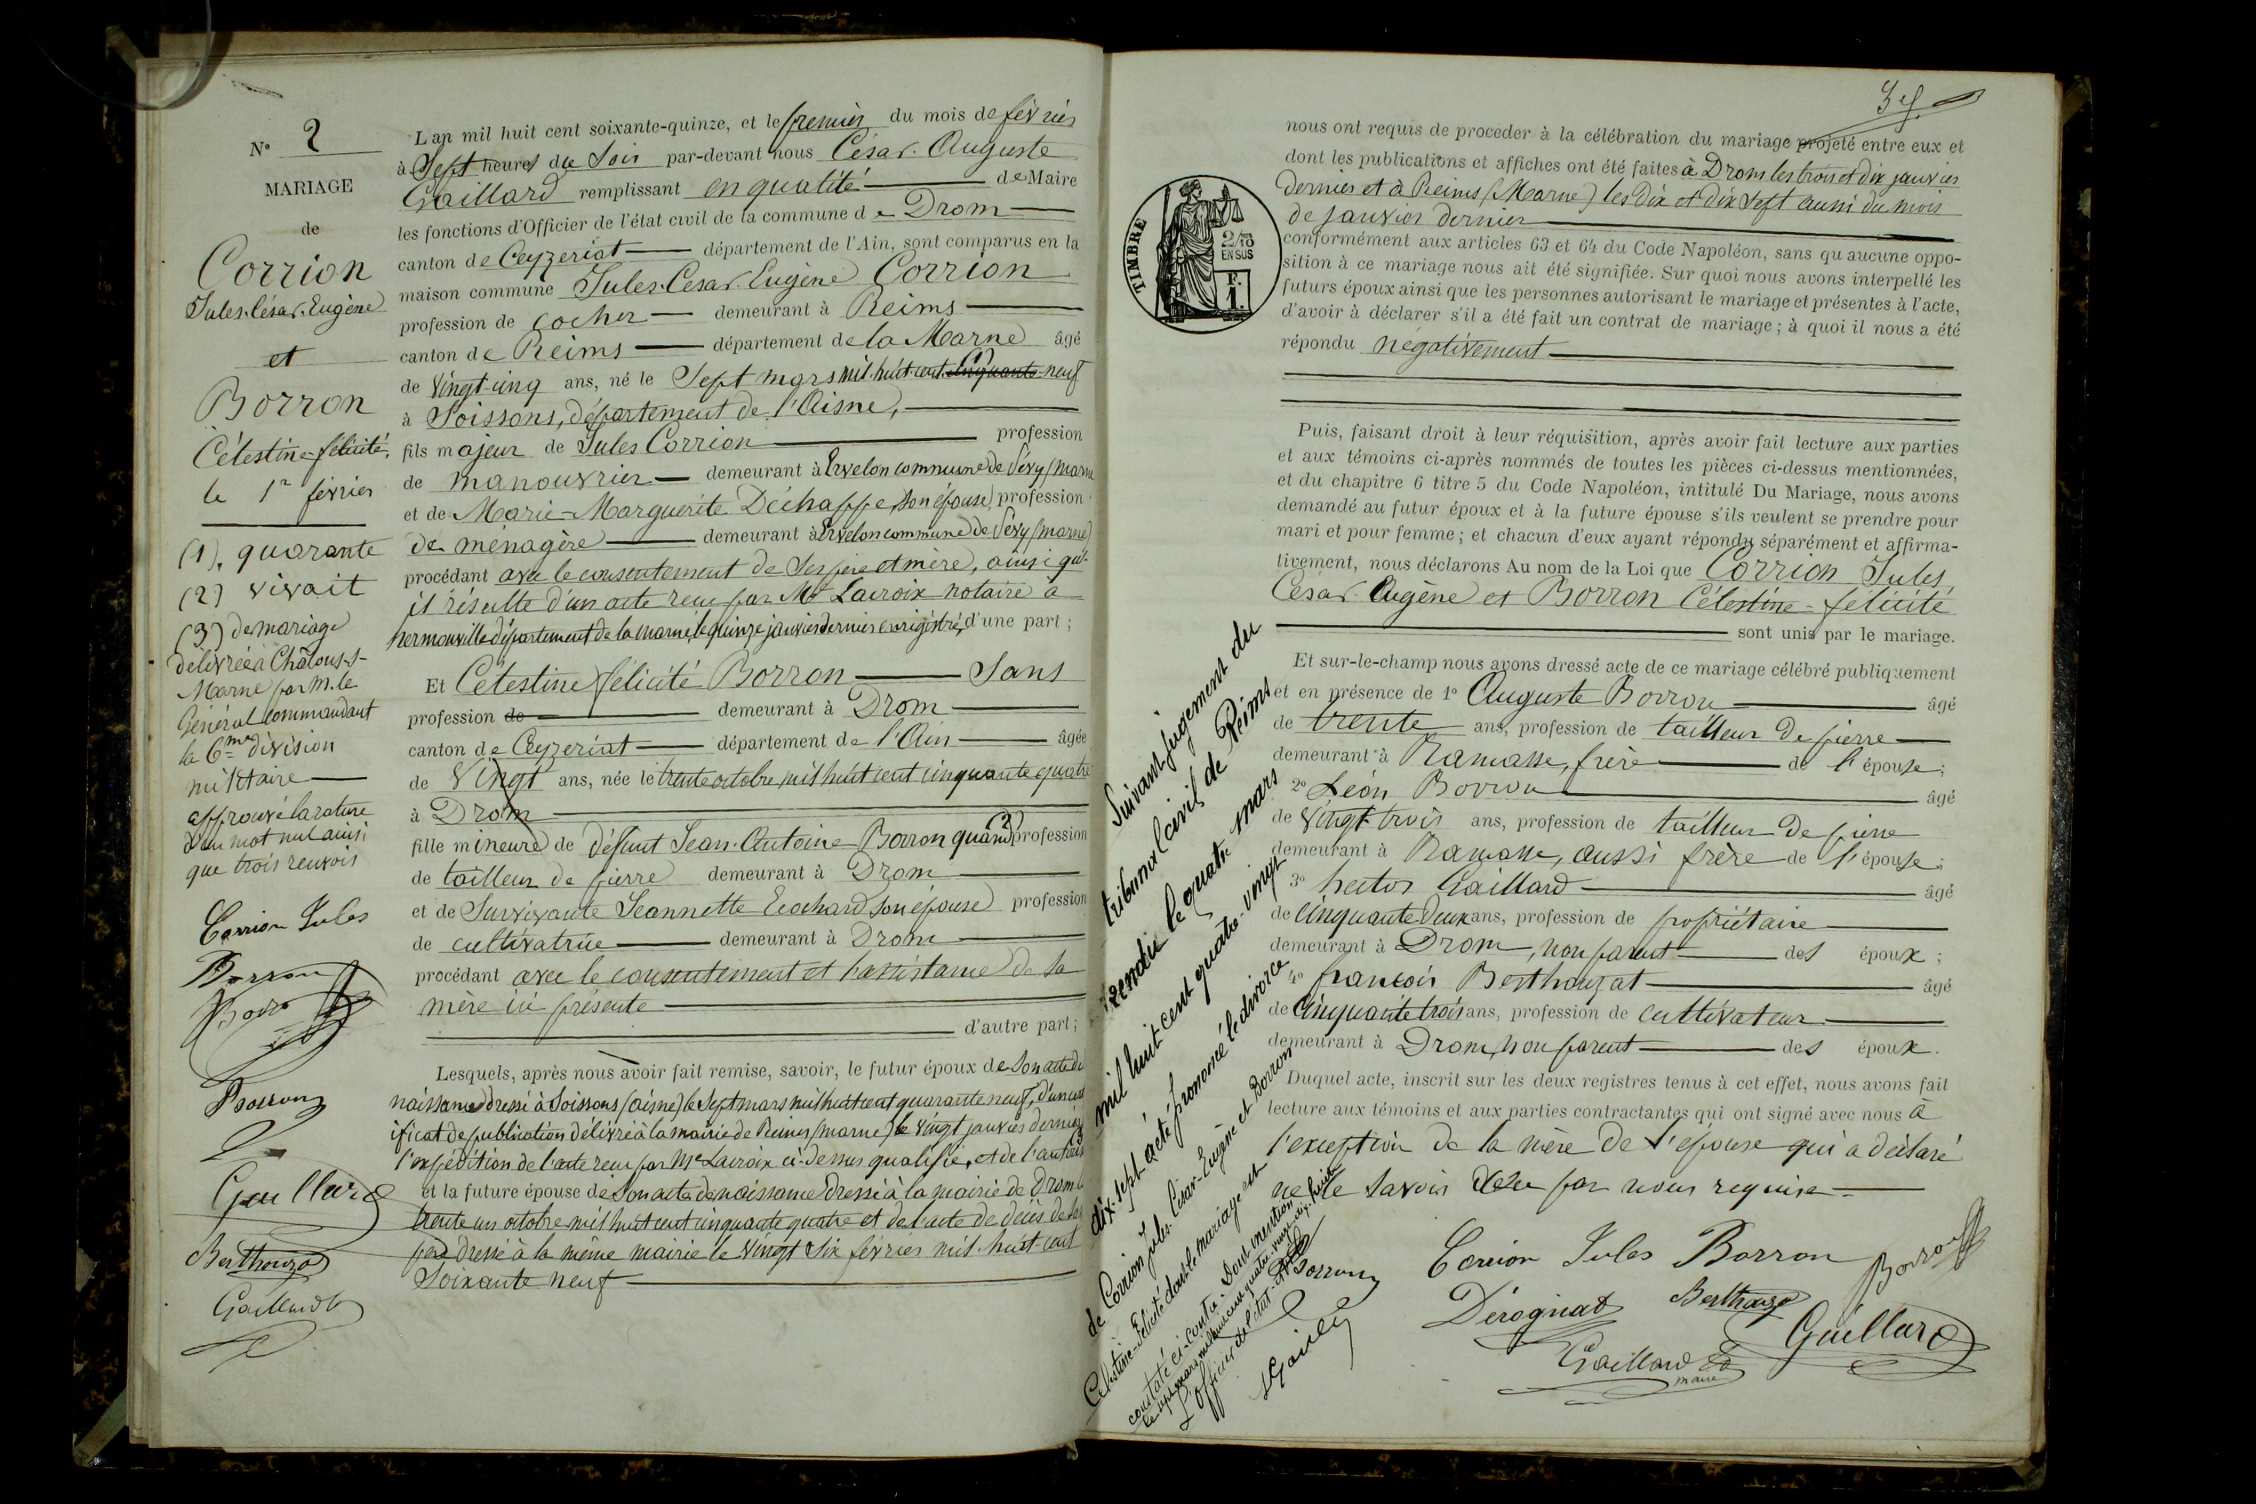 N° 2
MARIAGE
de
Corrion
Jules-César-Eugène
et
Borron
Célestine-félicité,
le 1er février
(1). quarante
(2) vivait
(3) de mariage
délivrée à Châlons-s-
Marne par M. le
Général commandant
la 6me division
militaire
approuvé la rature
d'un mot nul ainsi
que trois renvois
Corrion Jules
Borron
Borron
Borron
Gaillard
Berthouzat
Gaillard
L'an mil huit cent soixante-quinze, et le premier du mois de février
à Sept heures du Soir par-devant nous César-Auguste
Gaillard remplissant en qualité de Maire
les fonctions d'Officier de l'état civil de la commune de Drom
canton de Ceyzeriat département de l'Ain, sont comparus en la
maison commune Jules-César-Eugène Corrion
profession de cocher demeurant à Reims
canton de Reims département de la Marne âgé
de Vingt-cinq ans, né le Sept mars mil-huit-cent-cinquante-neuf (1)
à Soissons, département de l'Aisne,
fils majeur de Jules Corrion profession
de manouvrier demeurant à Ervelon commune de Sévy (Marne
et de Marie-Marguerite Déchappe, son épouse, profession
de ménagère demeurant à Ervelon commune de Sévy (marne)
procédant avec le consentement de Ses père et mère, ainsi qu'-
il résulte d'un acte reçu par Me Lacroix notaire à
hermonville département de la marne, le quinze janvier dernier enrégistré, d'une part ;
Et Célestine félicité Borron Sans
profession de demeurant à Drom
canton de Ceyzeriat département de l'Ain âgée
de Vingt ans, née le trente octobre mil huit cent cinquante quatre
à Drom
fille mineure de défunt Jean-Antoine Borron quand (2) profession
de tailleur de pierre demeurant à Drom
et de Survivante Jeannette Ecochard son épouse profession
de cultivatrice demeurant à Drom
procédant avec le consentement et l'assistance de sa
mère ici présente
d'autre part ;
Lesquels, après nous avoir fait remise, savoir, le futur époux de Son acte de
naissance dressé à Soissons (aisne) le Sept mars mil huit cent quarante neuf, d'un cert
ificat de publication délivré à la mairie de Reims (marne) le vingt janvier dernier
l'expédition de l'acte reçu par Me Lacroix ci-dessus qualifié, et de l'autoris (3)
et la future épouse de Son acte de naissance dressé à la mairie de Drom le
trente un octobre mil huit cent cinquante quatre et de l'acte de décès de Son
père dressé à la même mairie le Vingt Six février mil-huit cent
Soixante neuf
3 e f.
TIMBRE
2/10
EN SUS
F.
1.
nous ont requis de procéder à la célébration du mariage projeté entre eux et
dont les publications et affiches ont été faites à Drom les trois et dix janvier
dernier et à Reims (Marne) les Dix et Dix Sept aussi du mois
de janvier dernier
conformément aux articles 63 et 64 du Code Napoléon, sans qu'aucune oppo-
sition à ce mariage nous ait été signifiée. Sur quoi nous avons interpellé les
futurs époux ainsi que les personnes autorisant le mariage et présentes à l'acte,
d'avoir à déclarer s'il a été fait un contrat de mariage ; à quoi il nous a été
répondu négativement
Puis, faisant droit à leur réquisition, après avoir fait lecture aux parties
et aux témoins ci-après nommés de toutes les pièces ci-dessus mentionnées,
et du chapitre 6 titre 5 du Code Napoléon, intitulé Du Mariage, nous avons
demandé au futur époux et à la future épouse s'ils veulent se prendre pour
mari et pour femme ; et chacun d'eux ayant répondu séparément et affirma-
tivement, nous déclarons Au nom de la Loi que Corrion Jules
César-Eugène et Borron Célestine-félicité
sont unis par le mariage.
Et sur-le-champ nous avons dressé acte de ce mariage célébré publiquement
et en présence de 1° Auguste Borron âgé
de trente ans, profession de tailleur de pierre
demeurant à Ramasse, frère de l'épouse ;
2° Léon Borron âgé
de Vingt-trois ans, profession de tailleur de pierre
demeurant à Ramasse, aussi frère de l'épouse ;
3° hector Gaillard âgé
de cinquante deux ans, profession de propriétaire
demeurant à Drom, non parent des époux ;
4° françois Berthouzat âgé
de cinquante trois ans, profession de cultivateur
demeurant à Drom, non parent des époux.
Duquel acte, inscrit sur les deux registres tenus à cet effet, nous avons fait
lecture aux témoins et aux parties contractantes qui ont signé avec nous à
l'exception de la mère de l'épouse qui a déclaré
ne le savoir de ce par nous requise
Corrion Jules Borron Borron
Dérognat Berthouzat
Gaillard Gaillard
maire
Borron
Suivant jugement du
tribunal civil de Reims
rendu le quatre mars
mil huit cent quatre-vingt
dix-sept a été prononcé le divorce
de Corrion Jules-César-Eugène et Borron
Célestine-Félicité dont le mariage est
constaté ci-contre. Dont mention
L'officier de l'état-civil